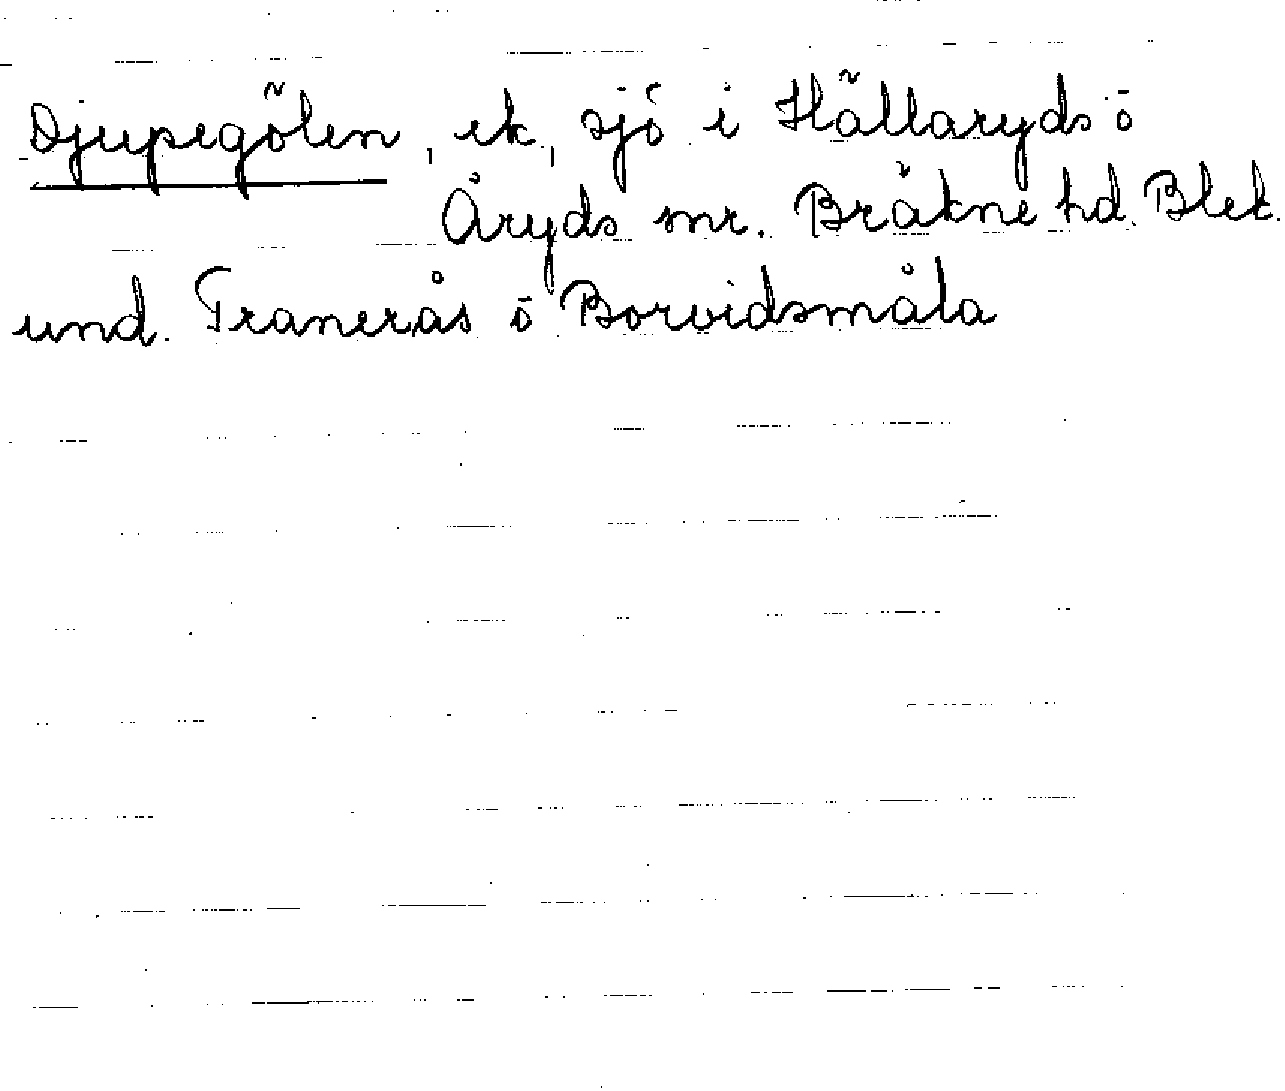 Djupegölen, ek, sjö i Hällaryds ö
Åryds mr. Bräkne hd. Blek.
und. Tranerås ö Borvidsmåla